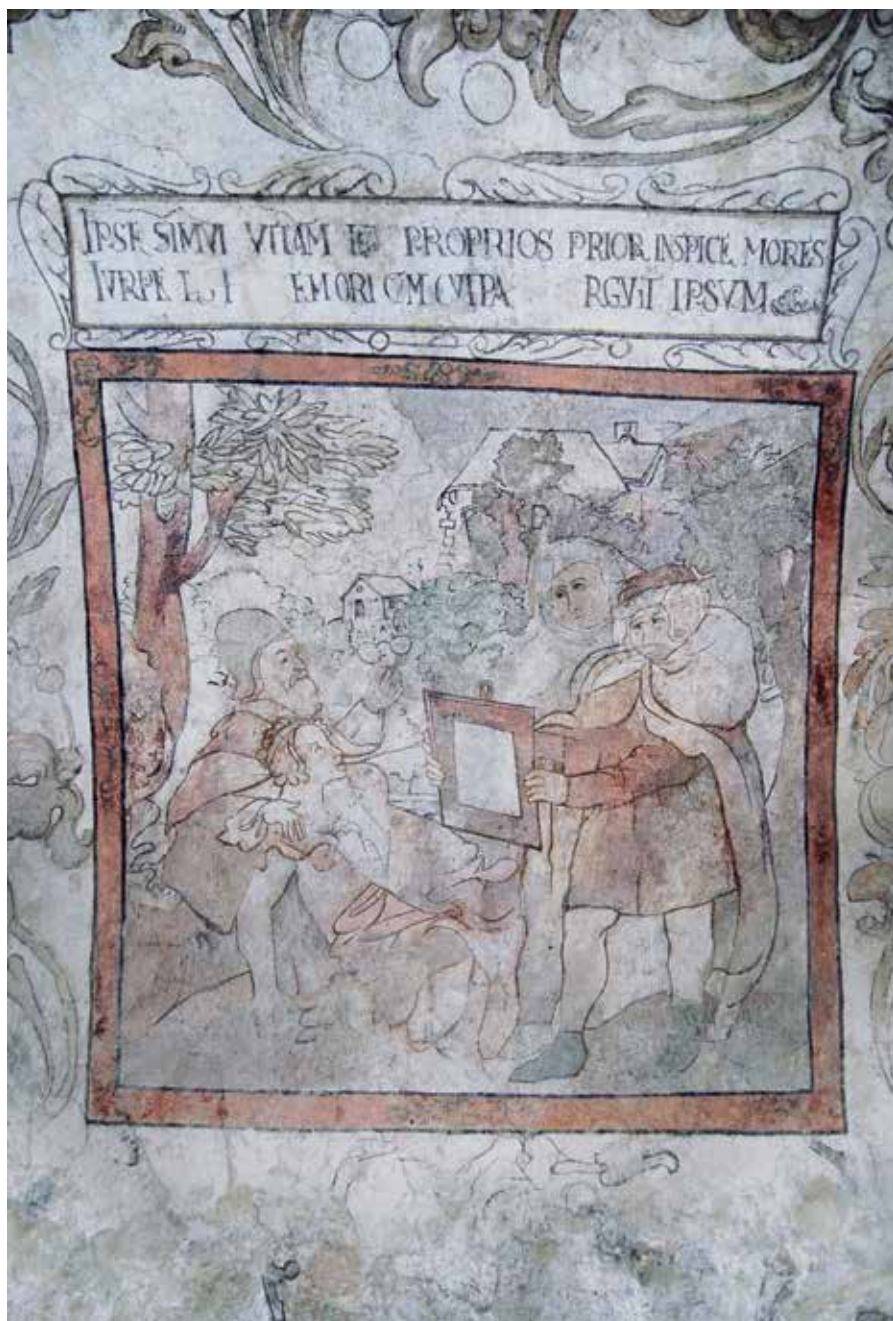 IPSE SIMVI VITAM PROPRIOS PRIOR INSPICE MORES
EMORI CVM CVIPA RGVIT IPSVM